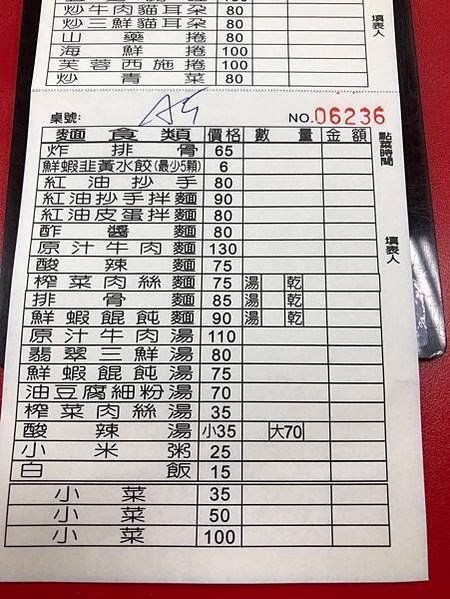 炒牛肉貓耳朵 80
炒三鮮貓耳朵 80
山藥捲 80
海鮮捲 100
芙蓉西施捲 100
炒青菜 80
填表人
桌號: A5 NO.06236
麵食類 價格 數量 金額
點菜時間
填表人
炸排骨 65
鮮蝦韭黃水餃(最少5顆) 6
紅油抄手 80
紅油抄手拌麵 90
紅油皮蛋拌麵 80
酢醬麵 80
原汁牛肉麵 130
酸辣麵 75
榨菜肉絲麵 75 湯 乾
排骨麵 85 湯 乾
鮮蝦餛飩麵 90 湯 乾
原汁牛肉湯 110
翡翠三鮮湯 80
鮮蝦餛飩湯 75
油豆腐細粉湯 70
榨菜肉絲湯 35
酸辣湯 小35 大70
小米粥 25
白飯 15
小菜 35
小菜 50
小菜 100